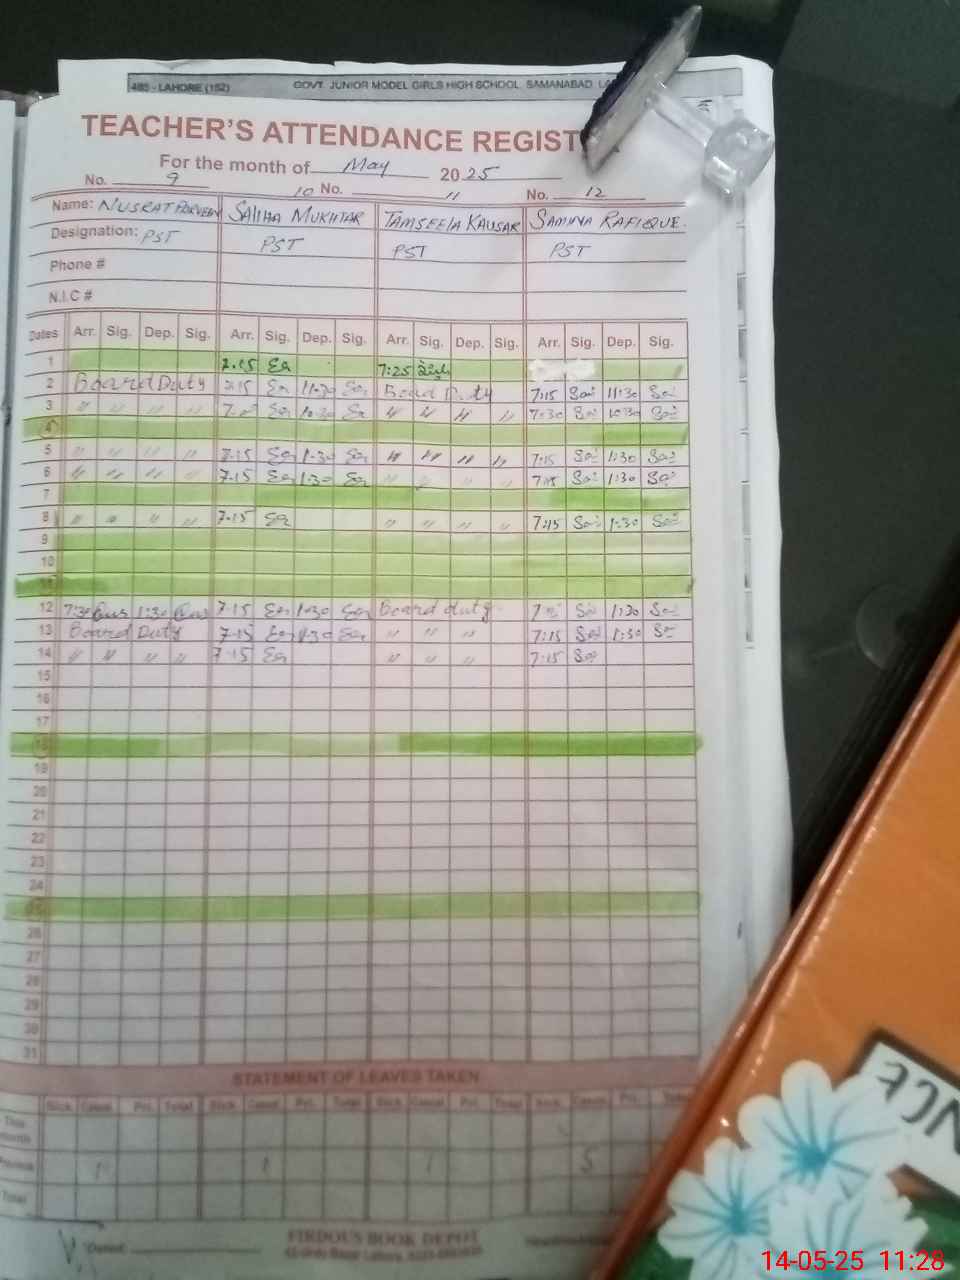 485 - LAHORE (152) GOVT. JUNIOR MODEL GIRLS HIGH SCHOOL, SAMANABAD,
TEACHER'S ATTENDANCE REGIST
For the month of May 2025
No. 9 10 No. 11 No. 12
Name: NUSRAT PARVEEN SALIHA MUKHTAR TAMSEELA KAUSAR SAMINA RAFIQUE.
Designation: PST PST PST PST
Phone #
N.I.C #
Dates Arr. Sig. Dep. Sig. Arr. Sig. Dep. Sig. Arr. Sig. Dep. Sig. Arr. Sig. Dep. Sig.
1 7.15 7:25
2 Board Duty 7.15 11.30 Board Duty 7:15 11:30
3 " " " " 10.30 " " " " 7:30 10:30
4
5 " " " " 7.15 1.30 " " " " 7:15 1:30
6 " " " " 7.15 1.30 " " " " 7:15 1:30
7
8 " " " " 7.15 " " " " 7:15 1:30
9
10
11
12 7:30 1:30 7.15 1.30 Board duty 1:30
13 Board Duty 7.15 1.30 " " " 7:15 1:30
14 " " " " 7.15 " " " 7:15
15
16
17
18
19
20
21
22
23
24
25
26
27
28
29
30
31
STATEMENT OF LEAVES TAKEN
Sick. Casual Pri. Total Sick. Casual Pri. Total Sick. Casual Pri. Total Sick. Casual Pri. Total
This month
1 1 1 5
Total
Dated:
FIRDOUS BOOK DEPOT
NCE
14-05-25 11:28